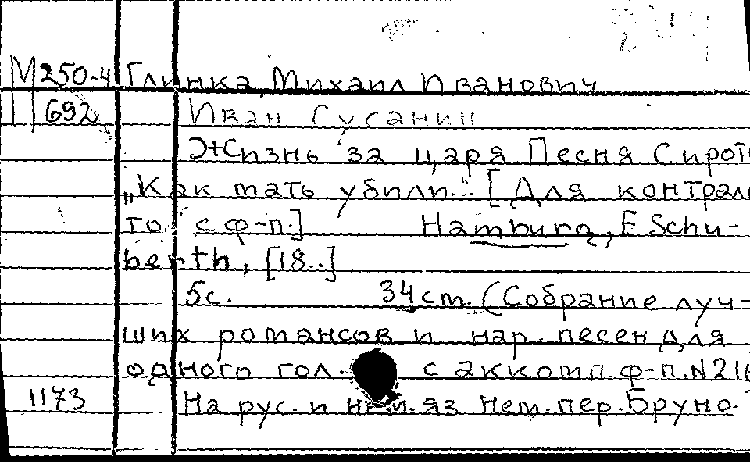 М250-4 Глинка, Михаил Иванович
692 Иван Сусанин
Жизнь за царя Песня Сирот
„Как мать убили". [Для контраль
то с ф-п.] Hamburg, E Schu-
berth, [18..]
5с. 34cm. (Собрание луч-
ших романсов и нар. песен для
одного гол. с аккомп. ф-п. N 216
1173 На рус. и нем. яз Нем. пер. Бруно